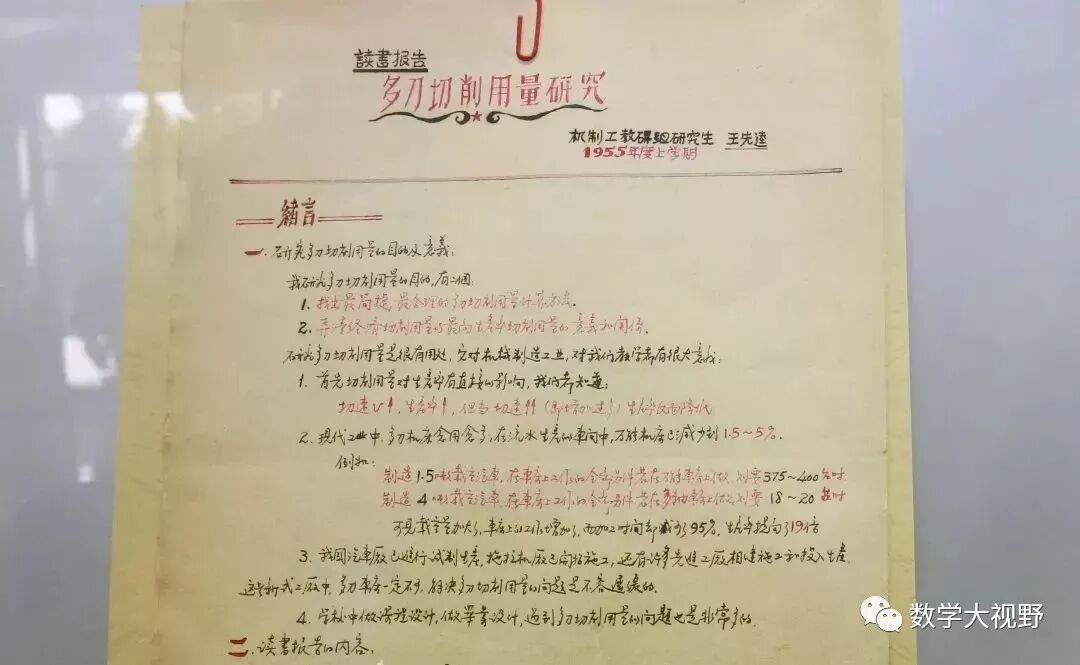 读書报告
多刀切削用量研究
机制工教研组研究生 王先逵
1955年度上学期
緒言
一. 研究多刀切削用量的目的及意義:
我研究多刀切削用量的目的,有二個:
1. 找出最简捷,最合理的多刀切削用量计算方法.
2. 弄清经济切削用量与最高生產率切削用量的意義和関係.
研究多刀切削用量是很有用处,它对机械制造工业,对我们教学都有很大意義:
1. 首先切削用量对生產率有直接的影响,我们都知道:
切速v↑,生產率↑,但当切速↑↑(即增加过多)生產率反而降低
2. 现代工业中,多刀机床会用会多,在流水生產的車间中,万能机床已减少到1.5~5%.
例如:
制造1.5吨載重汽車,在車床上工作的全部另件若在万能車床上做,則要375~400台时
制造4吨載重汽車,在車床上工作的全部另件若在多軸車床上做,則要18~20台时
可见載重量加大了,車床上的工作增加了,而加工时间却减少了95%,生產率提高了19倍
3. 我国汽車厰已進行试制生產,拖拉机厰已開始施工,还有许多先進工厰相继施工和投入生產.
这些新式工厰中,多刀車床一定不少,解决多刀切削用量的问题是不容遲缓的.
4. 学校中做课程设计,做畢業设计,遇到多刀切削用量的问题也是非常多的.
二. 读書报告的内容:
数学大视野